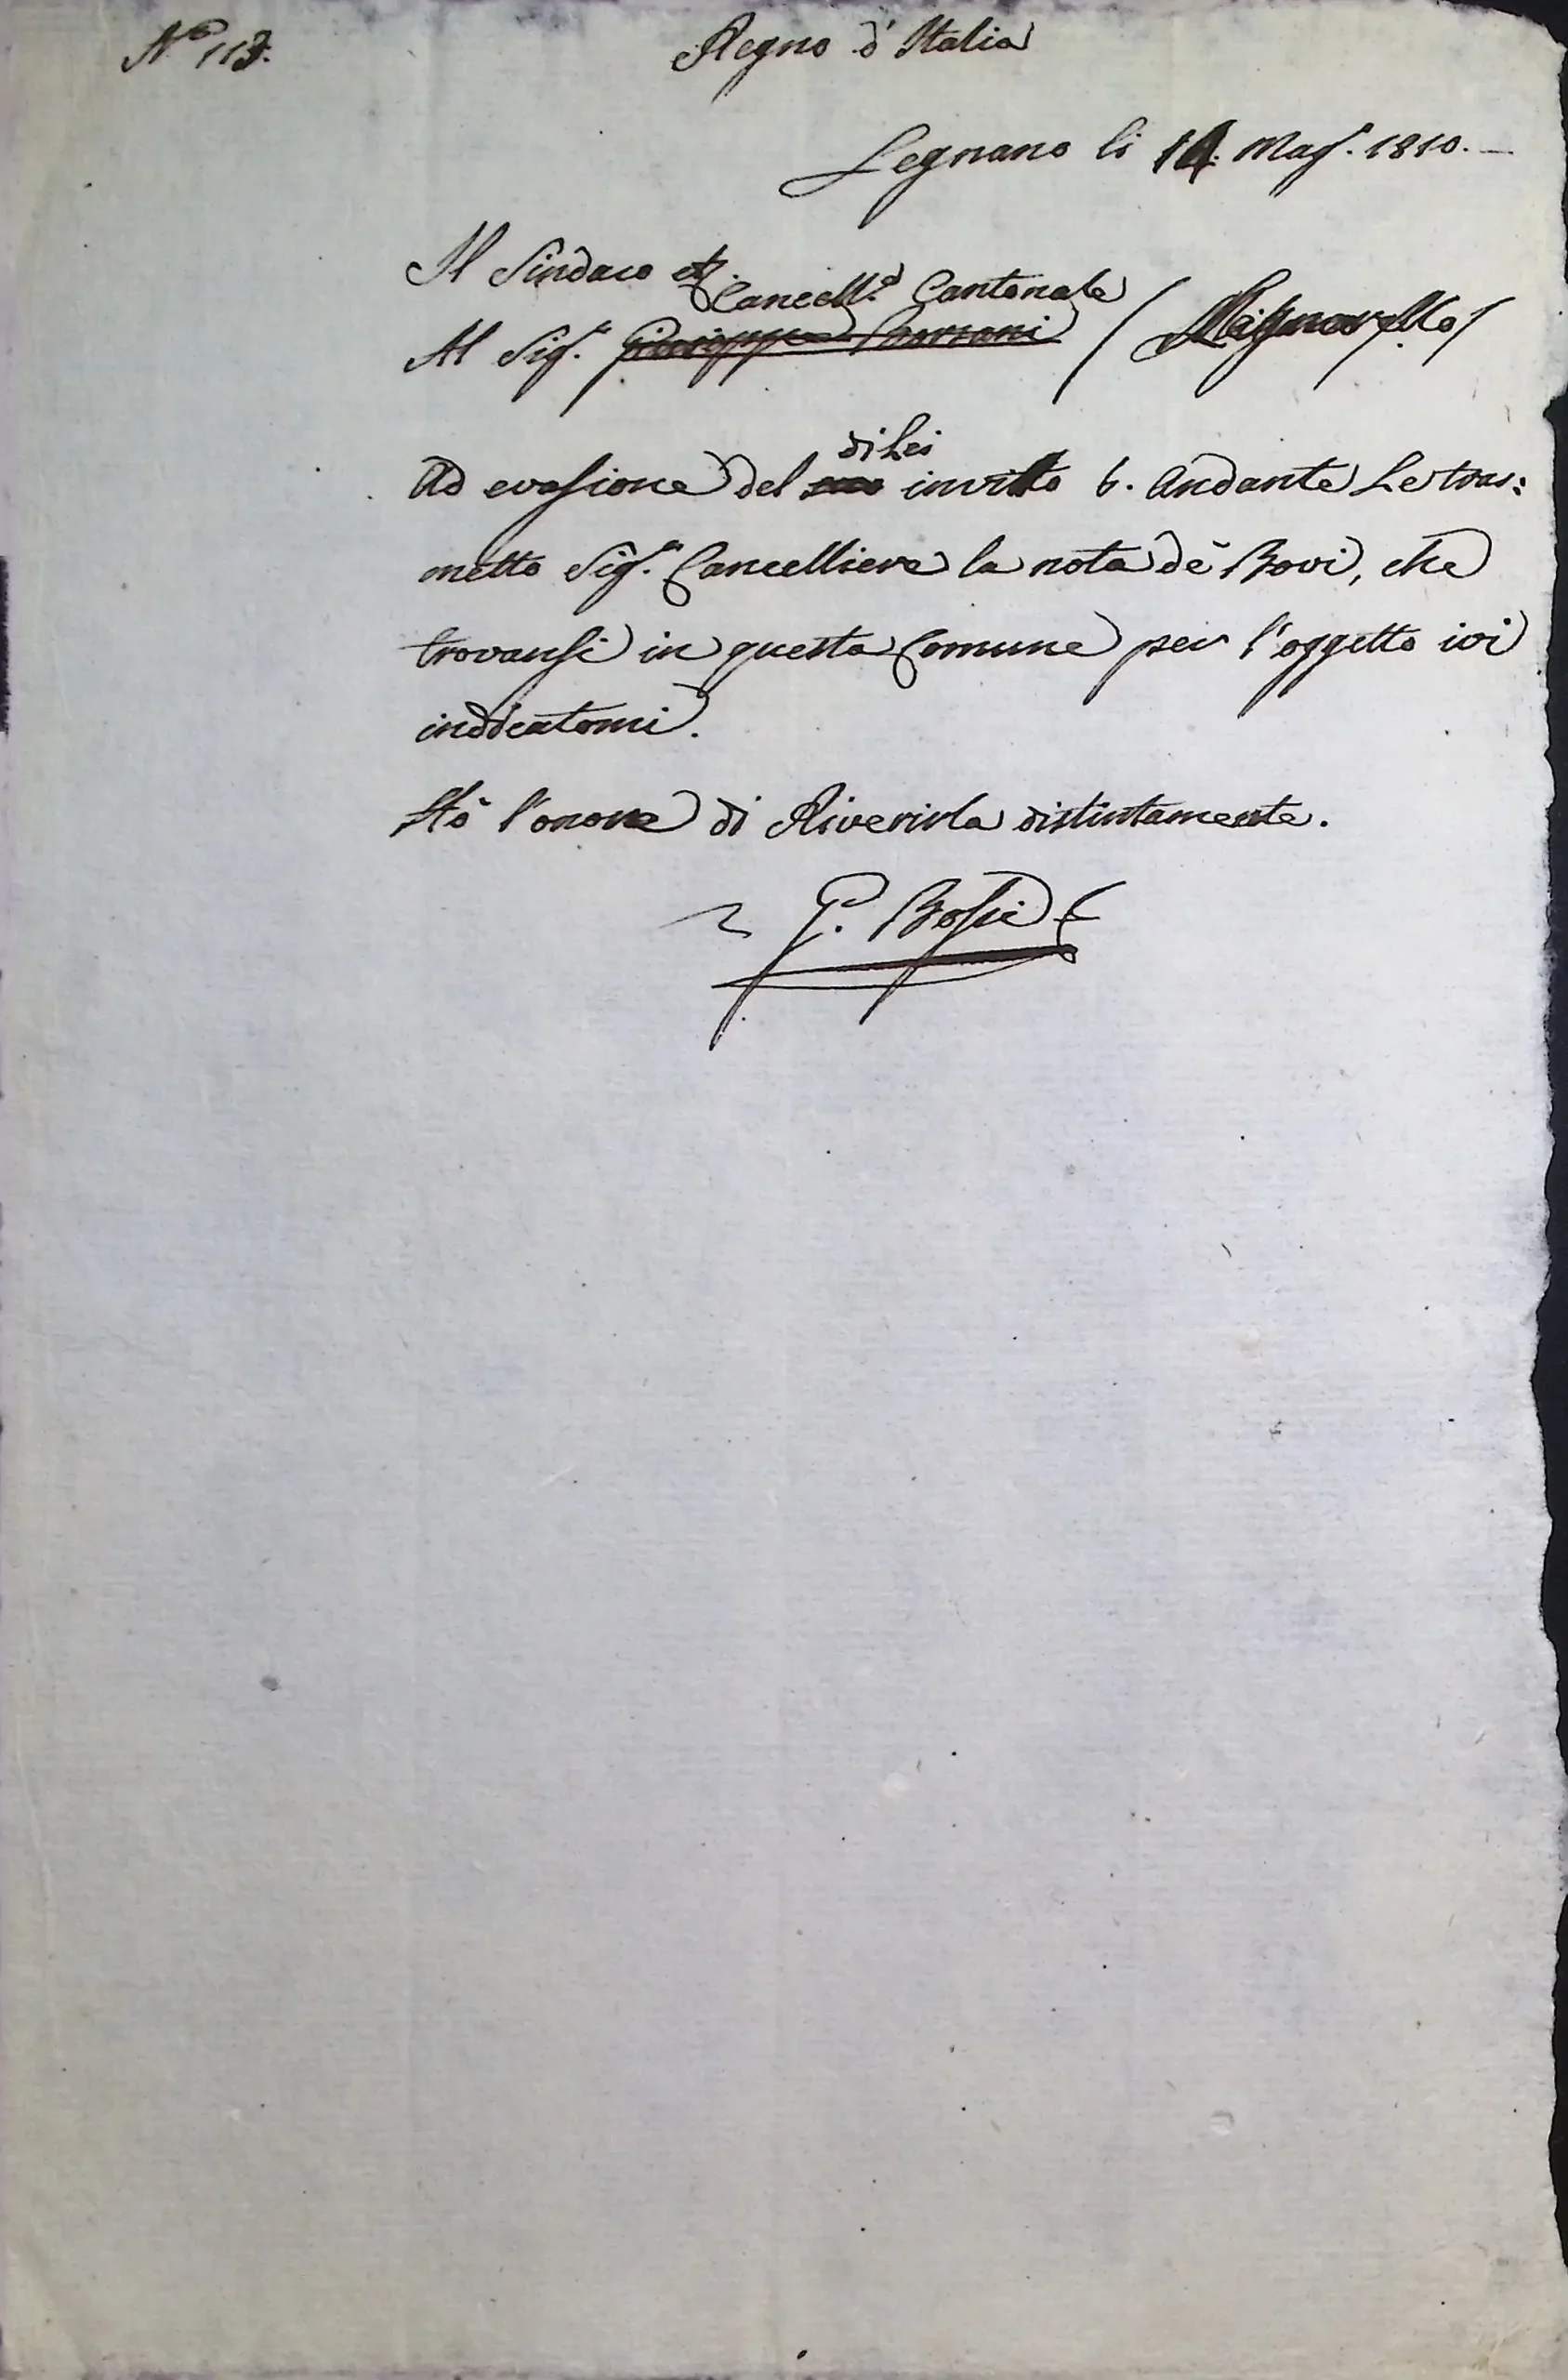 N° 113.
Regno d'Italia
Legnano li 14. Mag°. 1810. –
Il Sindaco etz.
Cancell.e Cantonale
Al Sig.r Giuseppe /
di Lei
Ad evasione del invito 6. Andante Le tras:
metto Sig.r Cancelliere la nota dè Bovi, che
trovansi in questa Comune per l'oggetto ivi
indicatomi.
Hò l'onore di Riverirla distintamente.
G. Bossi